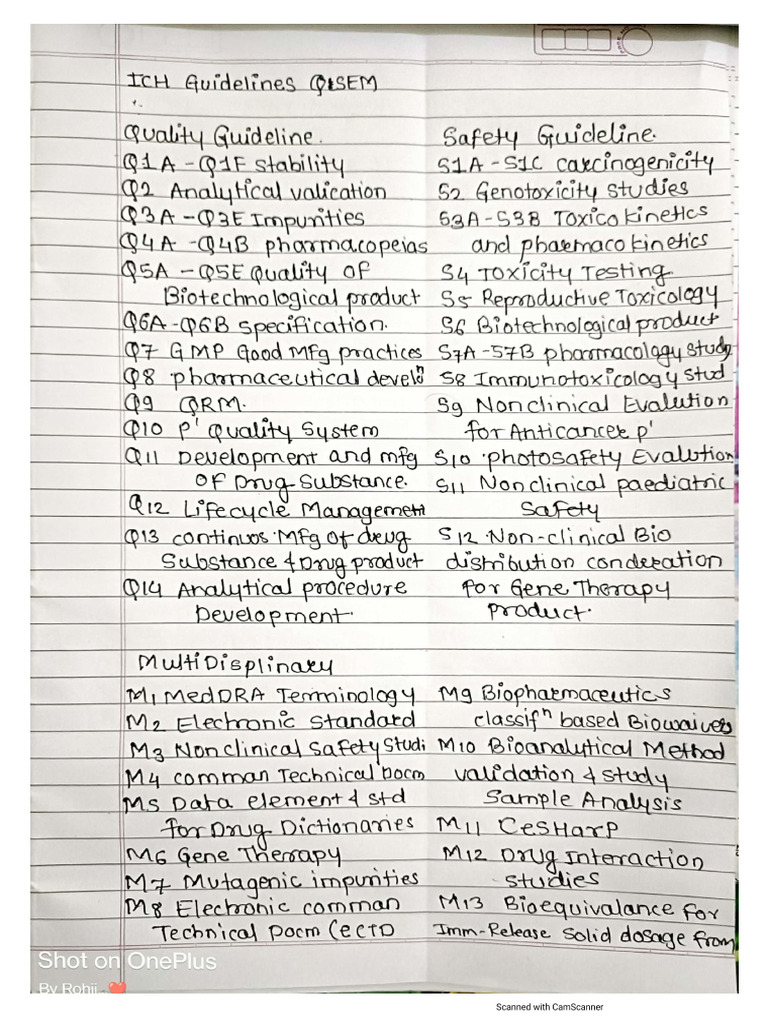 ICH Guidelines QSEM
Quality Guideline.
Q1A - Q1F stability
Q2 Analytical valication
Q3A - Q3E Impurities
Q4A - Q4B pharmacopeias
Q5A - Q5E Quality of
Biotechnological product
Q6A - Q6B specification.
Q7 GMP Good Mfg practices
Q8 pharmaceutical develⁿ
Q9 QRM.
Q10 p' Quality System
Q11 Development and mfg
of Drug Substance.
Q12 Lifecycle Management
Q13 continuos Mfg of drug
Substance & Drug product
Q14 Analytical procedure
Development.
Safety Guideline.
S1A - S1C carcinogenicity
S2 Genotoxicity studies
S3A - S3B Toxico kinetics
and pharmaco kinetics
S4 Toxicity Testing
S5 Reproductive Toxicology
S6 Biotechnological product
S7A - S7B pharmacology study
S8 Immunotoxicology stud
S9 Nonclinical Evalution
for Anticancer p'
S10 photosafety Evalution
S11 Nonclinical paediatric
Safety
S12 Non-clinical Bio
distribution conderation
for Gene Therapy
Product.
MultiDisplinary
M1 MedDRA Terminology
M2 Electronic Standard
M3 Nonclinical Safety Studi
M4 comman Technical Docm
M5 Data element & std
for Drug Dictionaries
M6 Gene Therapy
M7 Mutagenic impurities
M8 Electronic comman
Technical Docm (ectD
M9 Biopharmaceutics
classifⁿ based Biowaivers
M10 Bioanalytical Method
validation & study
Sample Analysis
M11 CeSHarP
M12 Drug Interaction
studies
M13 Bioequivalance for
Imm-Release Solid dosage from
Shot on OnePlus
By Rohii
Scanned with CamScanner